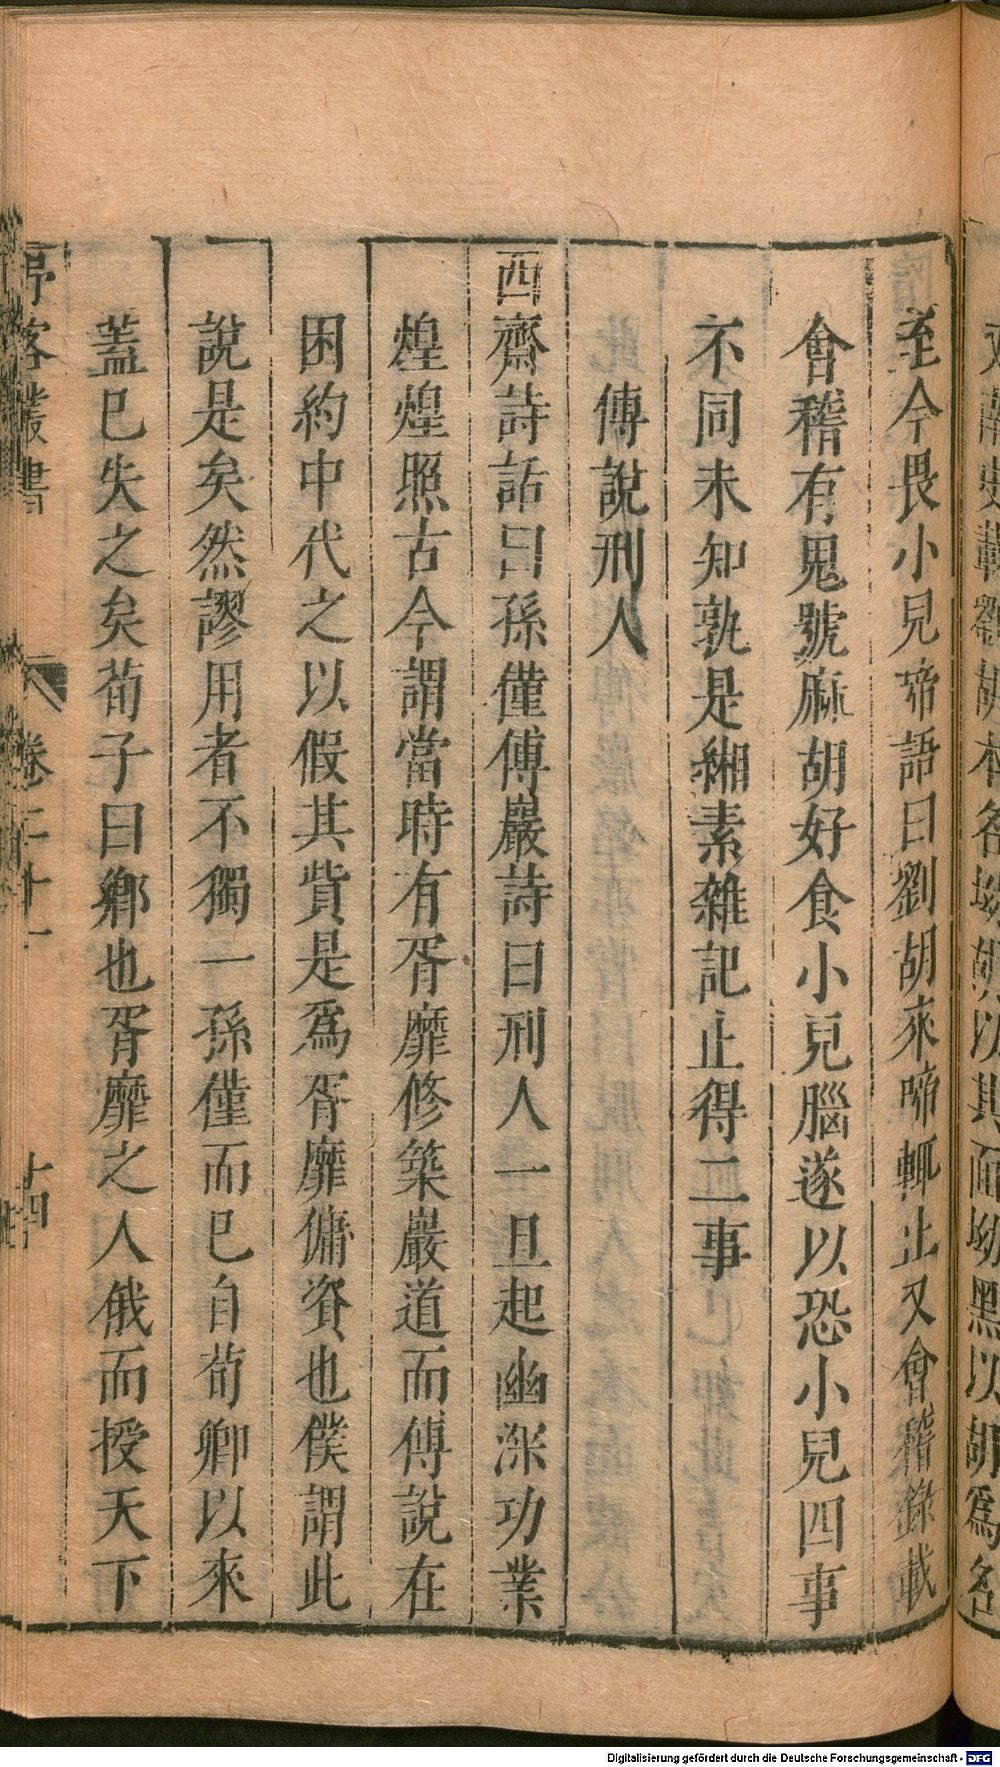 至今畏小兒啼語曰劉胡來啼輒止又會稽錄載
會稽有鬼號麻胡好食小兒腦遂以恐小兒四事
不同未知孰是緗素雜記止得二事
傅說刑人
西齋詩話曰孫僅傅巖詩曰刑人一旦起幽深功業
煌煌照古今謂當時有胥靡修築巖道而傅說在
困約中代之以假其貲是爲胥靡傭資也僕謂此
說是矣然謬用者不獨一孫僅而已自荀卿以來
蓋已失之矣荀子曰鄉也胥靡之人俄而授天下
客叢書
卷二十一
十四
Digitalisierung gefördert durch die Deutsche Forschungsgemeinschaft - DFG